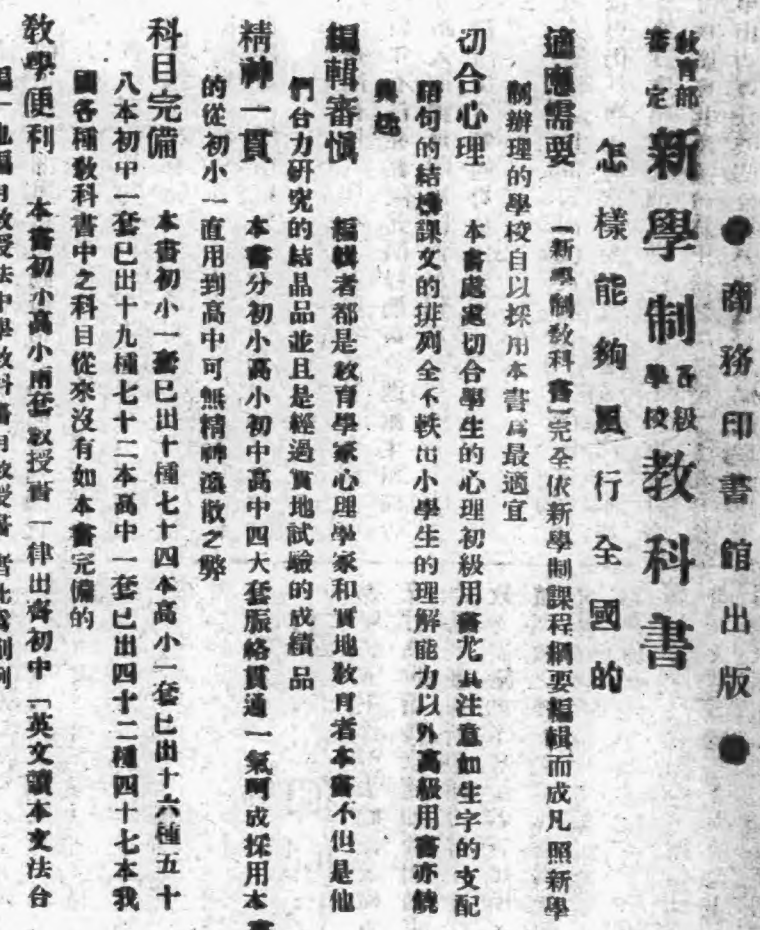 商務印書館出版
教育部審定 新學制 各級學校 教科書
怎樣能夠風行全國的
適應需要 「新學制教科書」完全依新學制課程綱要編輯而成凡照新學
制辦理的學校自以採用本書為最適宜
切合心理 本書處處切合學生的心理初級用書尤其注意如生字的支配
語句的結構課文的排列全不軼出小學生的理解能力以外高級用書亦饒
興趣
編輯審慎 編輯者都是教育學家心理學家和實地教育者本書不但是他
們合力研究的結晶品並且是經過實地試驗的成績品
精神一貫 本書分初小高小初中高中四大套脈絡貫通一氣呵成採用本
的從初小一直用到高中可無精神渙散之弊
科目完備 本書初小一套已出十種七十四本高小一套已出十六種五十
八本初中一套已出十九種七十二本高中一套已出四十二種四十七本我
國各種教科書中之科目從來沒有如本書完備的
教學便利 本書初小高小兩套教授書一律出齊初中「英文讀本文法合